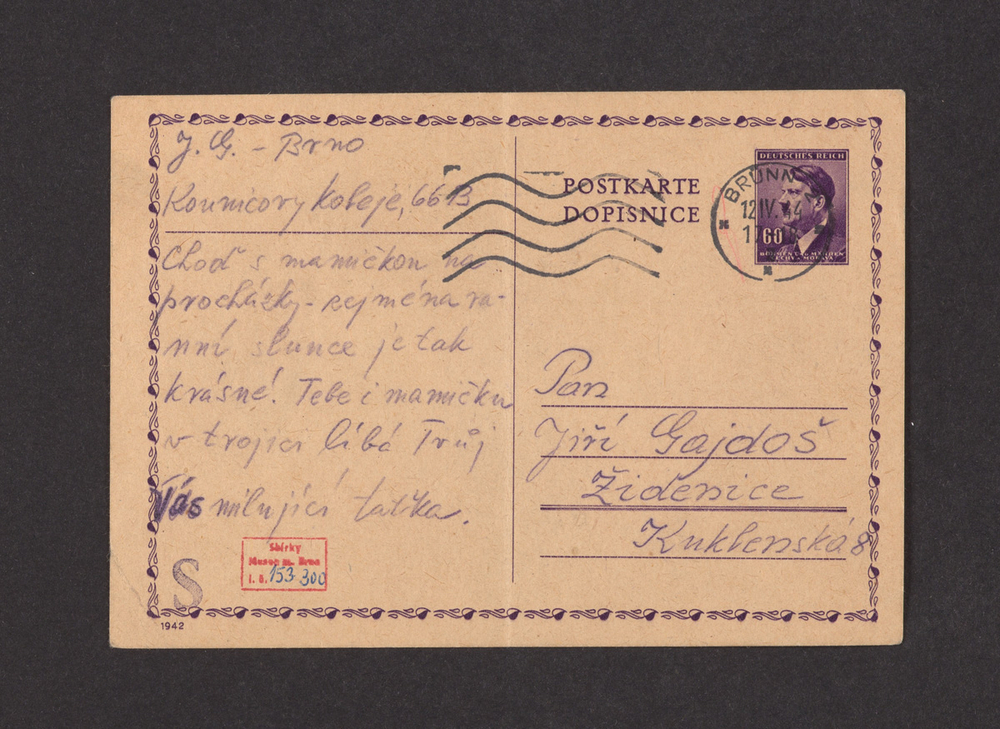 J. G. - Brno
Kounicovy koleje, 66 B
Choď s mamičkou na
procházky - zejména ra-
nní slunce je tak
krásné! Tebe i mamičku
v trojici líbá Tvůj
Vás milující tatka.
S
Sbírky
Musea m. Brna
i. č. 153 300
1942
POSTKARTE
DOPISNICE
DEUTSCHES REICH
60
BÖHMEN UND MÄHREN
ČECHY A MORAVA
BRÜNN
12 IV. 44
Pan
Jiří Gajdoš
Židenice
Kuklenská 8